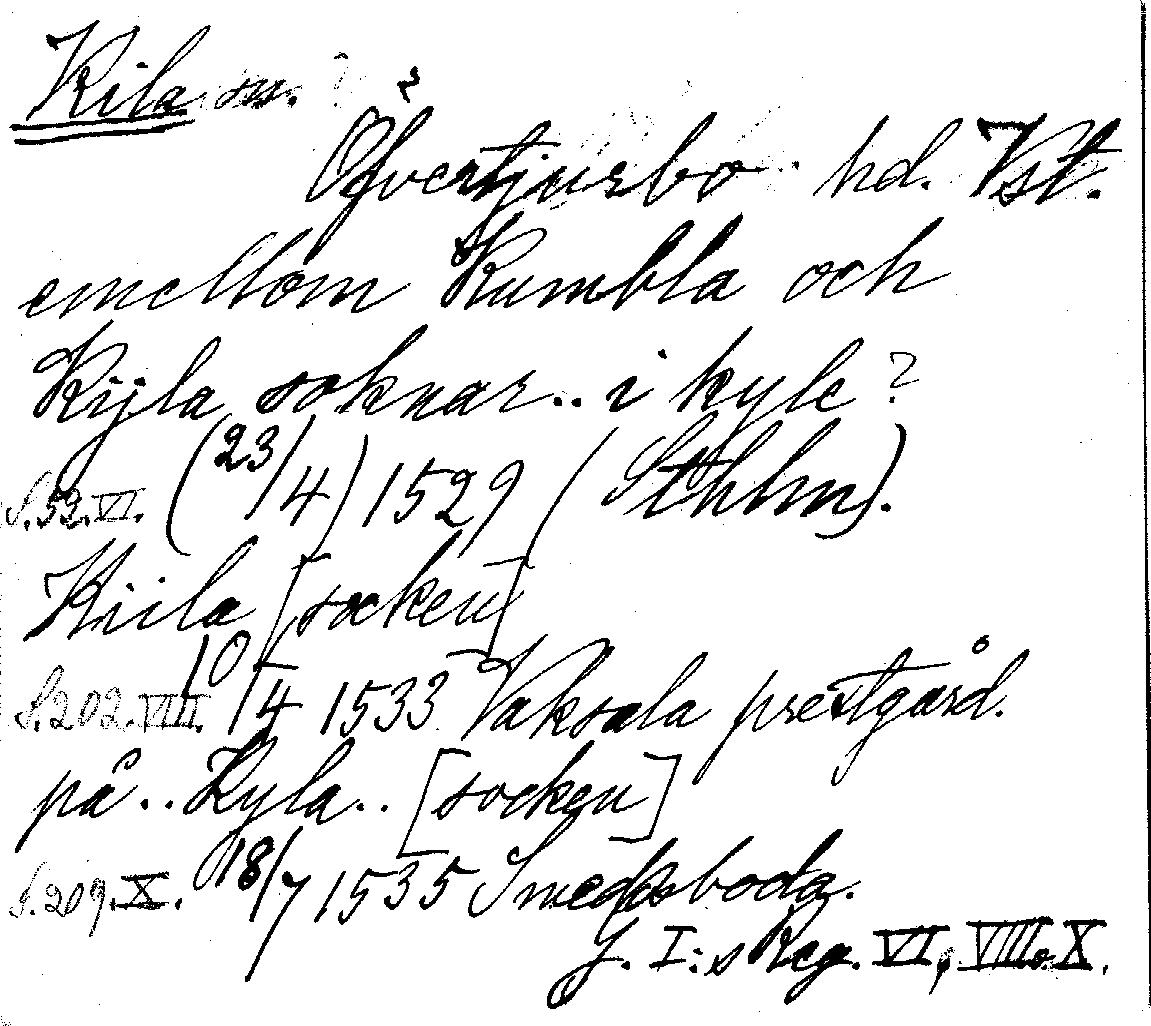 Kila sn.
Öfvertjurbo hd. Vst.
emellom Kumbla och
Kijla soknar.. i kyle?
S.52.VI. (23/4) 1529 (Sthlm).
Kiila [socken]
S.202.VIII. 10/4 1533 Vaksala prestgård.
på.. Kyla.. [socken]
S.209.X. 18/7 1535 Smedsboda.
G. I:s Reg. VI, VIII o. X.